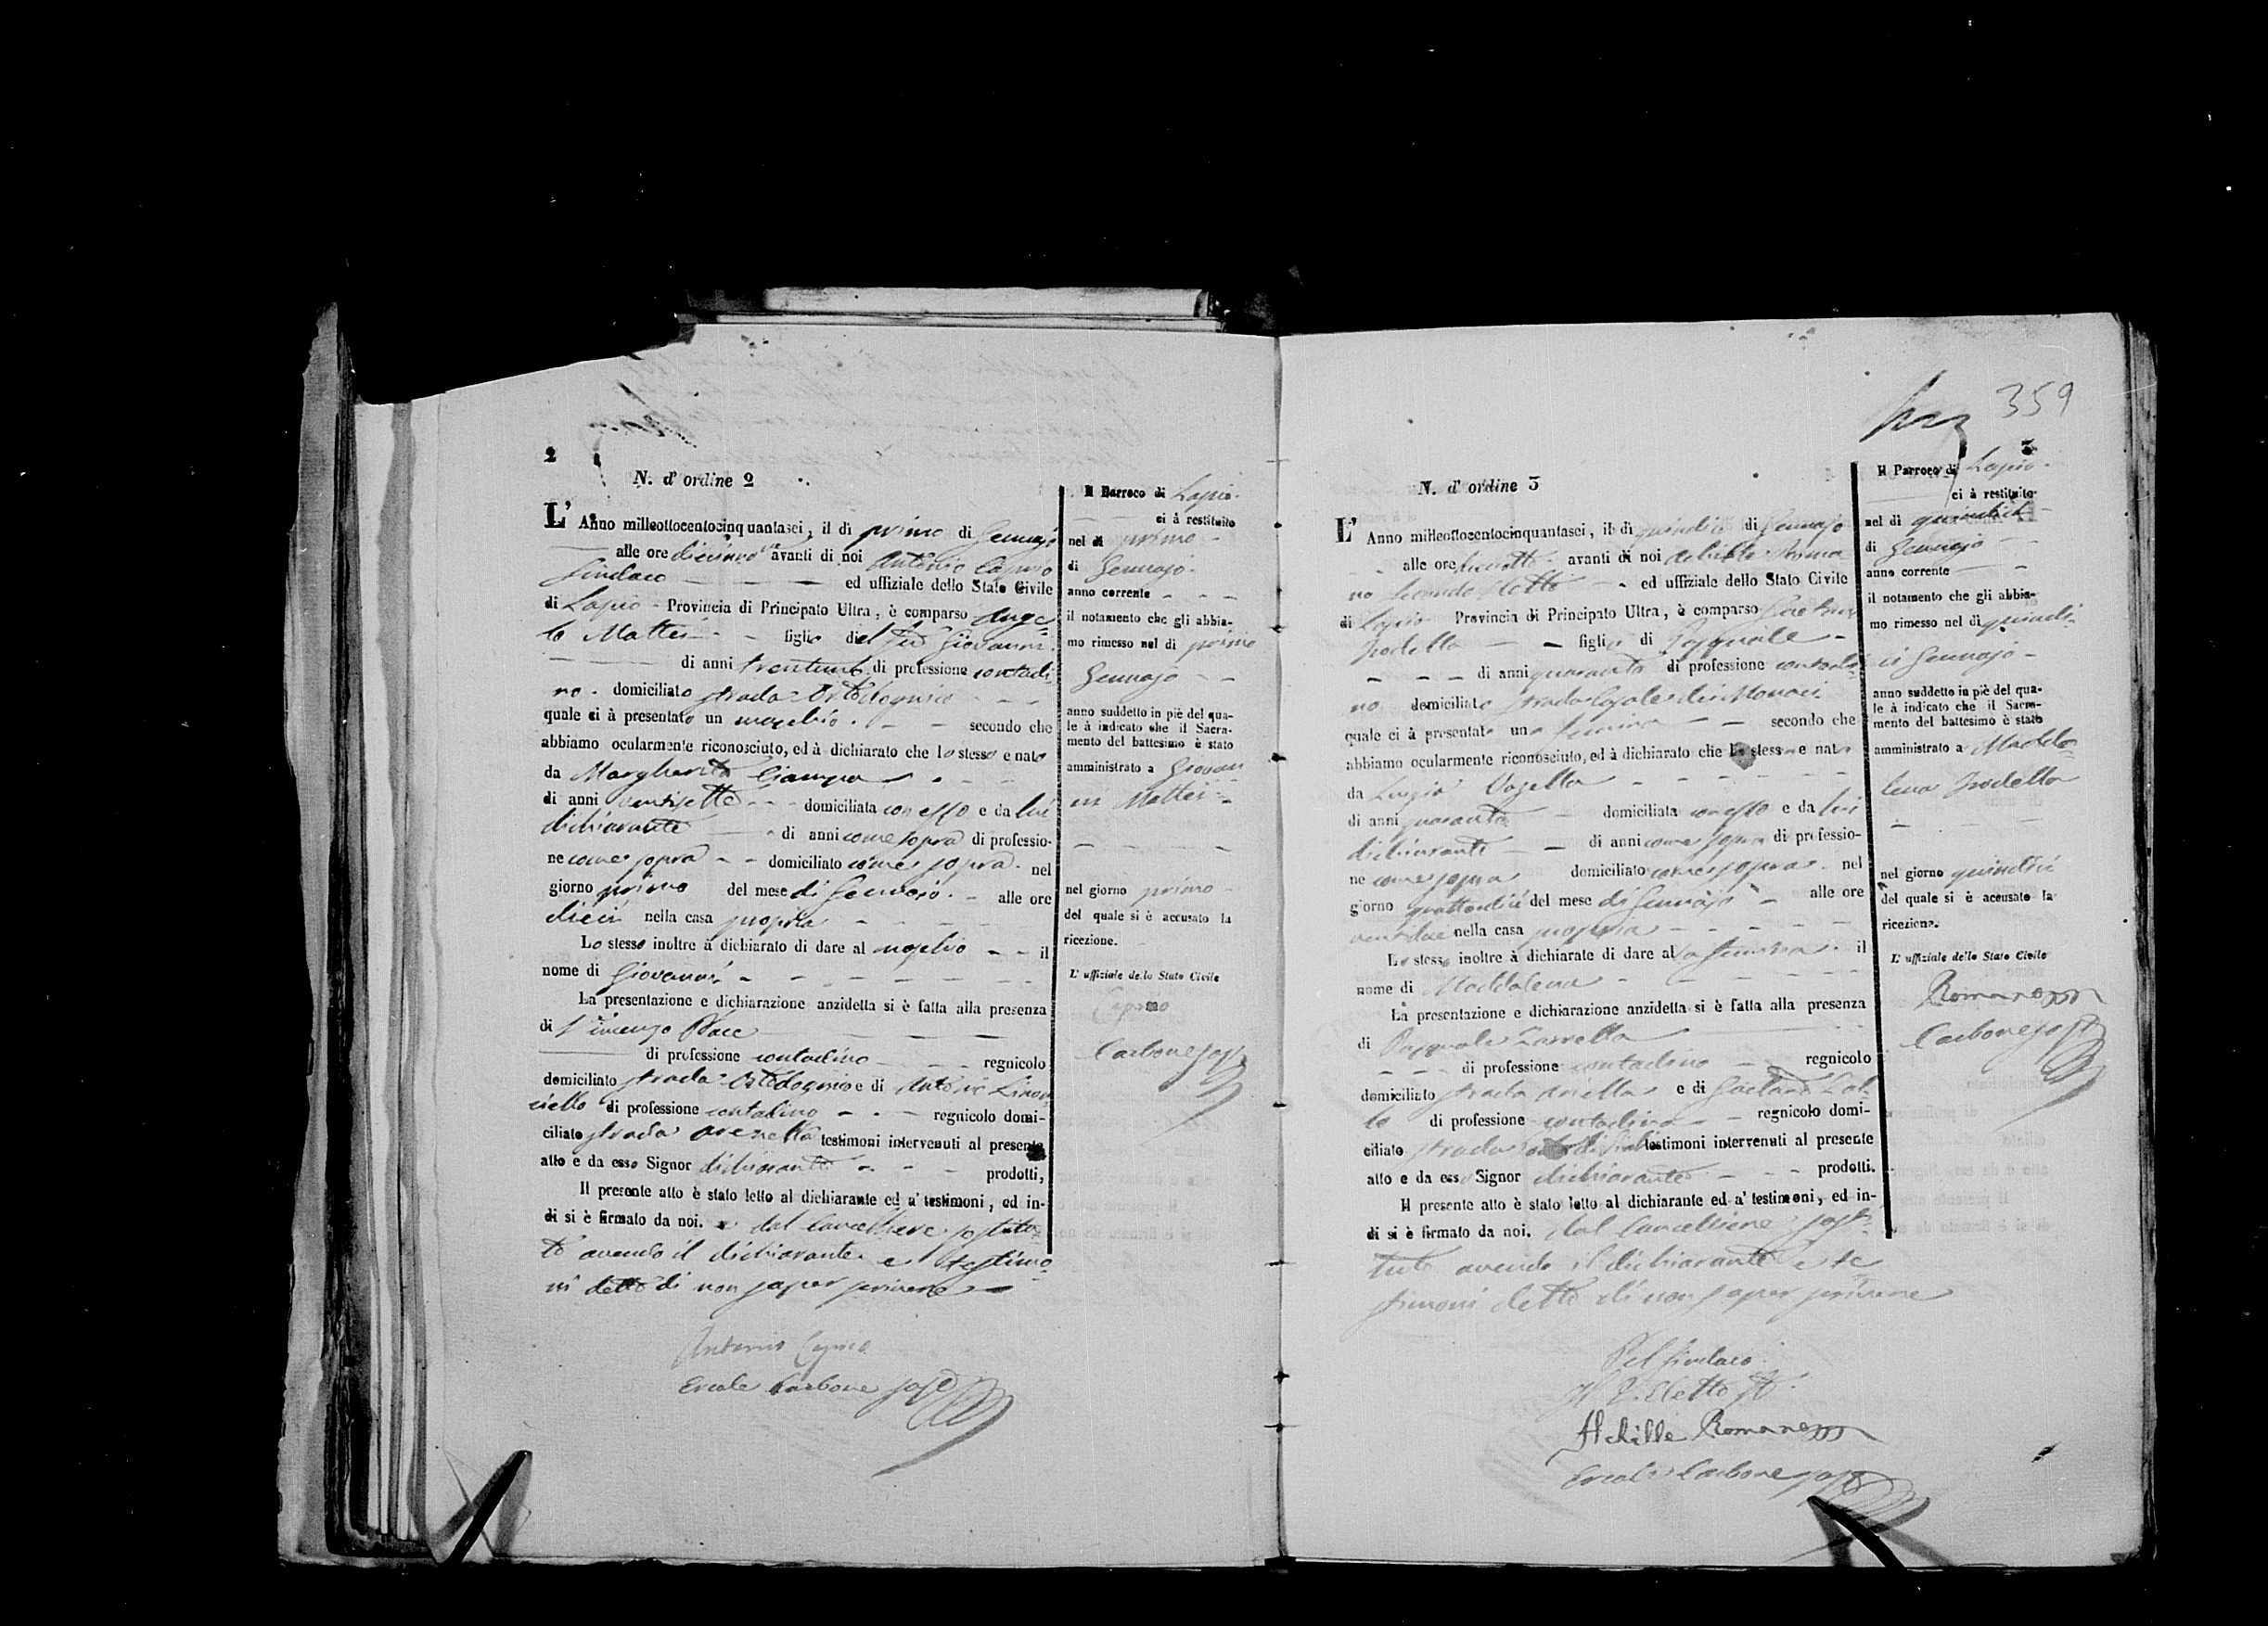 2
N. d' ordine 2
L' Anno milleottocentocinquantasei, il dì primo di Gennajo
alle ore diecinove avanti di noi Antonio Caprio
Sindaco ed uffiziale dello Stato Civile
di Lapio Provincia di Principato Ultra, è comparso Ange-
lo Mattei figlio del fu Giovanni
di anni trentuno di professione contadi-
no domiciliato strada
quale ci à presentato un maschio secondo che
abbiamo ocularmente riconosciuto, ed à dichiarato che lo stesso e nato
da Margherita Ciampa
di anni ventisette domiciliata con esso e da lui
dichiarante di anni come sopra di professio-
ne come sopra domiciliato come sopra nel
giorno primo del mese di Gennajo alle ore
dieci nella casa propria
Lo stesso inoltre à dichiarato di dare al maschio il
nome di Giovanni
La presentazione e dichiarazione anzidetta si è fatta alla presenza
di Vincenzo Pace
di professione contadino regnicolo
domiciliato strada e di Antonio
di professione contadino regnicolo domi-
ciliato strada testimoni intervenuti al presente
atto e da esso Signor dichiarante prodotti,
Il presente atto è stato letto al dichiarante ed a' testimoni, ed in-
di si è firmato da noi. e dal Cancelliere sostitu-
to avendo il dichiarante e testimo-
ni detto di non saper scrivere
Antonio Caprio
Ercole Carbone sost
Il Parroco di Lapio
ci à restituito
nel dì primo
di Gennajo
anno corrente
il notamento che gli abbia-
mo rimesso nel dì primo
Gennajo
anno suddetto in piè del qua-
le à indicato che il Sacra-
mento del battesimo è stato
amministrato a Giovan
ni Mattei
nel giorno primo
del quale si è accusato la
ricezione.
L' uffiziale dello Stato Civile
Caprio
Carbone sost
359
3
N. d' ordine 3
L' Anno milleottocentocinquantasei, il dì quindici di Gennajo
alle ore avanti di noi Achille Roma
no Secondo Eletto ed uffiziale dello Stato Civile
di Lapio Provincia di Principato Ultra, è comparso
figlio di Pasquale
di anni quaranta di professione contadi-
no domiciliato strada Casale dei Monaci
quale ci à presentato una femina secondo che
abbiamo ocularmente riconosciuto, ed à dichiarato che la stessa e nata
da
di anni quaranta domiciliata con esso e da lui
dichiarante di anni come sopra di professio-
ne come sopra domiciliato come sopra nel
giorno quattordici del mese di Gennajo alle ore
ventidue nella casa propria
Lo stesso inoltre à dichiarato di dare alla femina il
nome di Maddalena
La presentazione e dichiarazione anzidetta si è fatta alla presenza
di Pasquale Zarrella
di professione contadino regnicolo
domiciliato strada e di Gaetano
di professione contadino regnicolo domi-
ciliato strada testimoni intervenuti al presente
atto e da esso Signor dichiarante prodotti.
Il presente atto è stato letto al dichiarante ed a' testimoni, ed in-
di si è firmato da noi. dal Cancelliere sosti-
tuto avendo il dichiarante e te
stimoni detto di non saper scrivere
Pel Sindaco
Il 2. Eletto
Achille Romano
Ercole Carbone sost
Il Parroco di Lapio
ci à restituito
nel dì quindici
di Gennajo
anno corrente
il notamento che gli abbia-
mo rimesso nel dì quindi-
ci Gennajo
anno suddetto in piè del qua-
le à indicato che il Sacra-
mento del battesimo è stato
amministrato a Madda-
lena
nel giorno quindici
del quale si è accusato la
ricezione.
L' uffiziale dello Stato Civile
Romano
Carbone sost